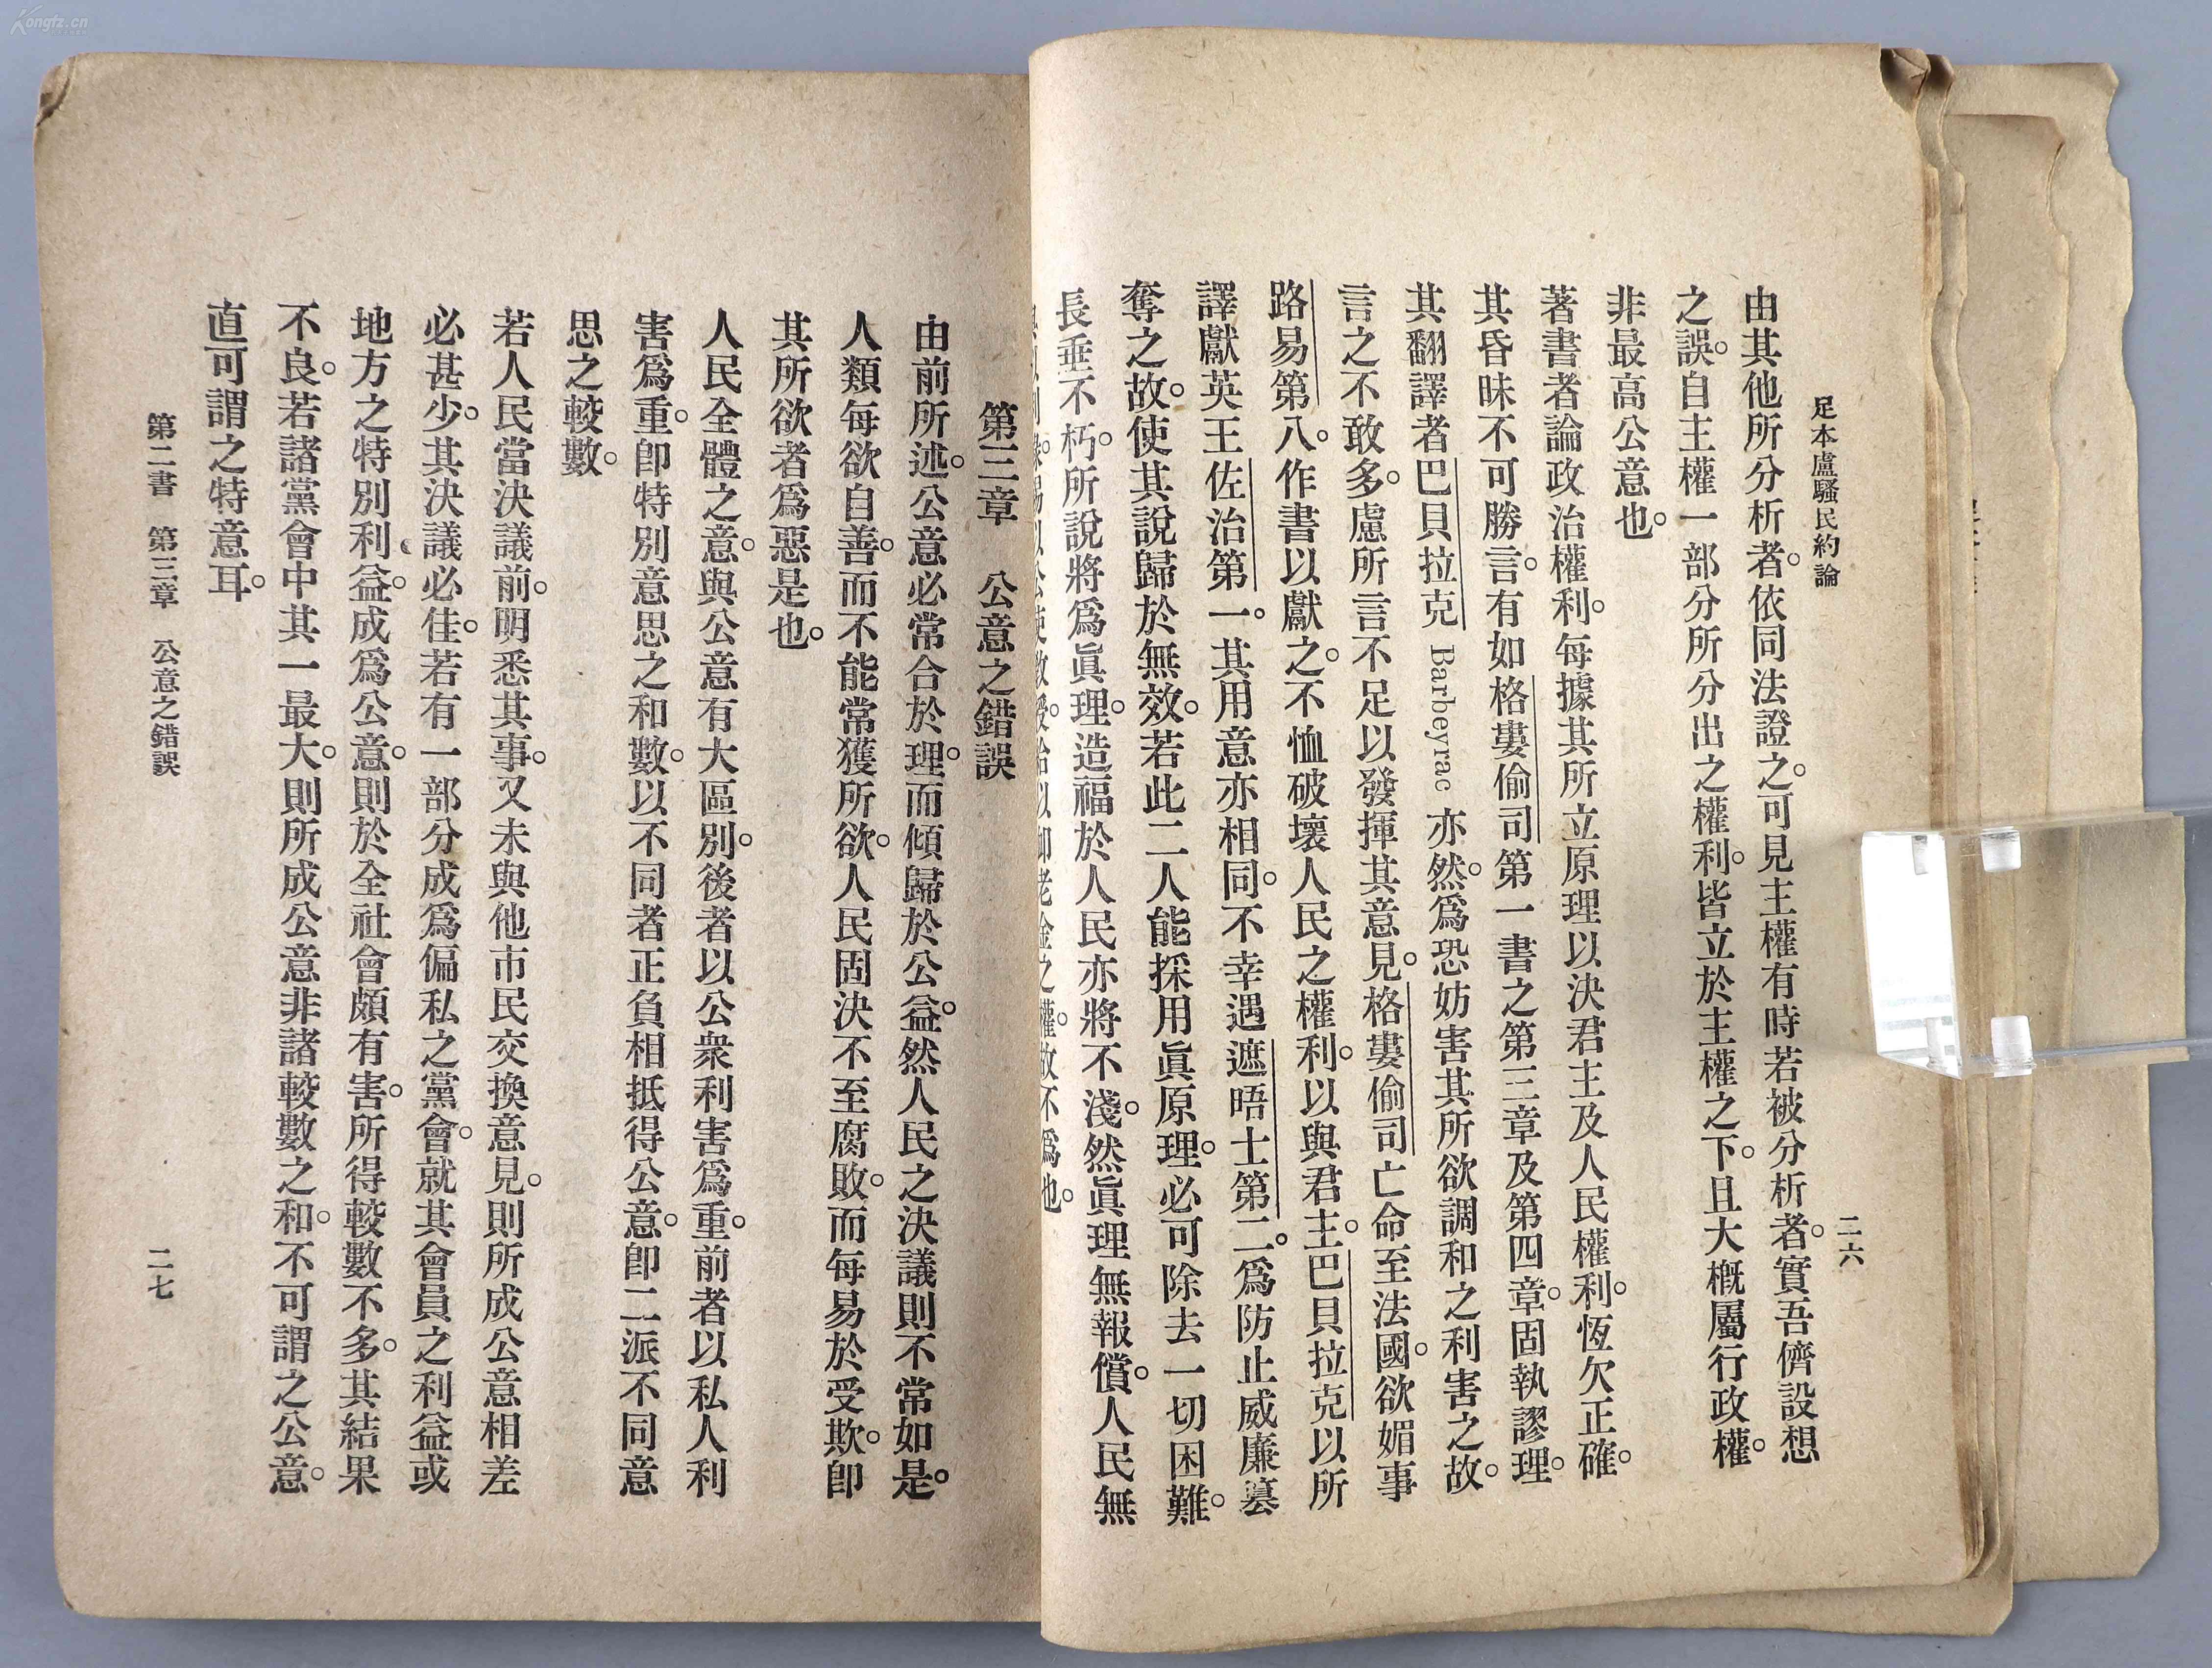 Kongfz.cn
足本盧騷民約論
二六
由其他所分析者。依同法證之。可見主權有時若被分析者。實吾儕設想
之誤。自主權一部分所分出之權利。皆立於主權之下。且大概屬行政權。
非最高公意也。
著書者論政治權利。每據其所立原理以決君主及人民權利。恆欠正確。
其昏昧不可勝言。有如格婁偷司第一書之第三章及第四章。固執謬理。
其翻譯者巴貝拉克 Barbeyrac 亦然。爲恐妨害其所欲調和之利害之故。
言之不敢多。慮所言不足以發揮其意見。格婁偷司亡命至法國。欲媚事
路易第八。作書以獻之。不恤破壞人民之權利。以與君主。巴貝拉克以所
譯獻英王佐治第一。其用意亦相同。不幸遇遮晤士第二。爲防止威廉簒
奪之故。使其說歸於無效。若此二人能採用眞原理。必可除去一切困難。
長垂不朽。所說將爲眞理。造福於人民亦將不淺。然眞理無報償。人民無
之權。故不爲也。
第三章 公意之錯誤
由前所述。公意必常合於理。而傾歸於公益。然人民之決議則不常如是。
人類每欲自善。而不能常獲所欲。人民固決不至腐敗。而每易於受欺。卽
其所欲者爲惡是也。
人民全體之意。與公意有大區別。後者以公衆利害爲重。前者以私人利
害爲重。卽特別意思之和數。以不同者正負相抵得公意。卽二派不同意
思之較數。
若人民當決議前。明悉其事。又未與他市民交換意見。則所成公意相差
必甚少。其決議必佳。若有一部分成爲偏私之黨會。就其會員之利益或
地方之特別利益。成爲公意。則於全社會頗有害。所得較數不多。其結果
不良。若諸黨會中其一最大。則所成公意非諸較數之和。不可謂之公意。
直可謂之特意耳。
第二書 第三章 公意之錯誤
二七